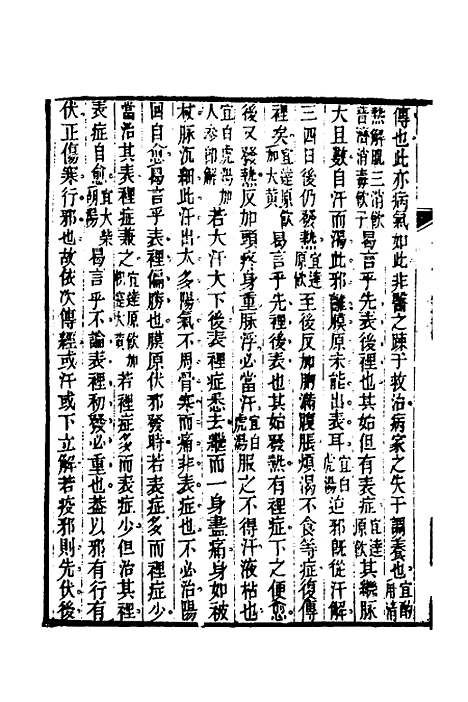 傳也此亦病氣如此非醫之踈于救治病家之失于調養也宜酌用清
熱解肌三消飲普濟消毒飲子曷言乎先表後裡也其始但有表症宜達原飲其繼脉
大且數自汗而渴此邪離膜原未能出表耳宜白虎湯迫邪旣從汗解
三四日後仍發熱宜達原飲至後反加胸滿腹脹煩渴不食等症復傳
裡矣宜達原飲加大黃曷言乎先裡後表也其始發熱有裡症下之便愈
後又發熱反加頭疼身重脉浮必當汗宜白虎湯服之不得汗液枯也
宜白虎湯加人參卽解若大汗大下後表裡症悉去繼而一身盡痛身如被
杖脉沉細此汗出太多陽氣不周骨寒而痛非表症也不必治陽
回自愈曷言乎表裡偏勝也膜原伏邪發時若表症多而裡症少
當治其表裡症兼之宜達原飲加檳榔大黃若裡症多而表症少但治其裡
表症自愈宜大柴胡湯曷言乎不論表裡初發必重也葢以邪有行有
伏正傷寒行邪也故依次傳經或汗或下立解若疫邪則先伏後